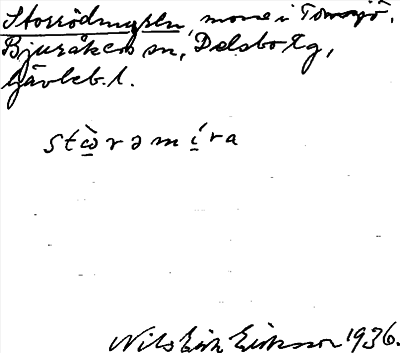 Storrödmyren, mosse i Tomsjö,
Bjuråkers sn, Delsbo tg,
Gävleb. l.
stὼrəmíra
Nils Erik Eriksson 1936.